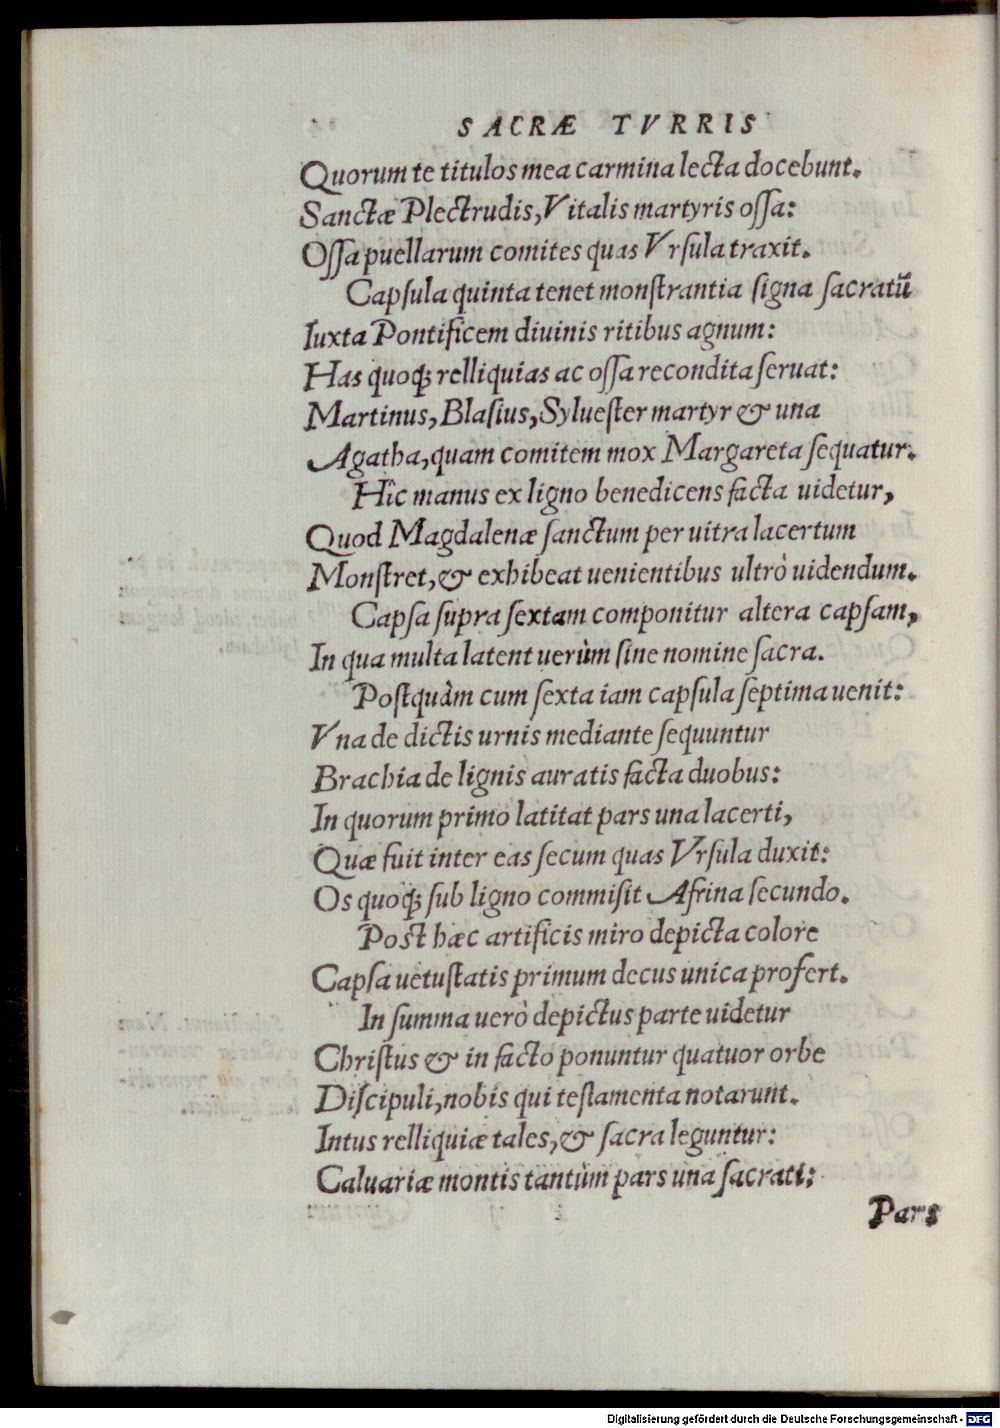 SACRÆ TVRRIS
Quorum te titulos mea carmina lecta docebunt.
Sanctæ Plectrudis, Vitalis martyris ossa:
Ossa puellarum comites quas Vrsula traxit.
Capsula quinta tenet monstrantia signa sacratũ
Iuxta Pontificem diuinis ritibus agnum:
Has quoq; relliquias ac ossa recondita seruat:
Martinus, Blasius, Syluester martyr & una
Agatha, quam comitem mox Margareta sequatur.
Hîc manus ex ligno benedicens facta uidetur,
Quod Magdalenæ sanctum per uitra lacertum
Monstret, & exhibeat uenientibus ultrò uidendum.
Capsa supra sextam componitur altera capsam,
In qua multa latent uerùm sine nomine sacra.
Postquàm cum sexta iam capsula septima uenit:
Vna de dictis urnis mediante sequuntur
Brachia de lignis auratis facta duobus:
In quorum primo latitat pars una lacerti,
Quæ fuit inter eas secum quas Vrsula duxit:
Os quoq; sub ligno commisit Afrina secundo.
Post hæc artificis miro depicta colore
Capsa uetustatis primum decus unica profert.
In summa uerò depictus parte uidetur
Christus & in facto ponuntur quatuor orbe
Discipuli, nobis qui testamenta notarunt.
Intus relliquiæ tales, & sacra leguntur:
Caluariæ montis tantùm pars una sacrati:
Pars
Digitalisierung gefördert durch die Deutsche Forschungsgemeinschaft - DFG